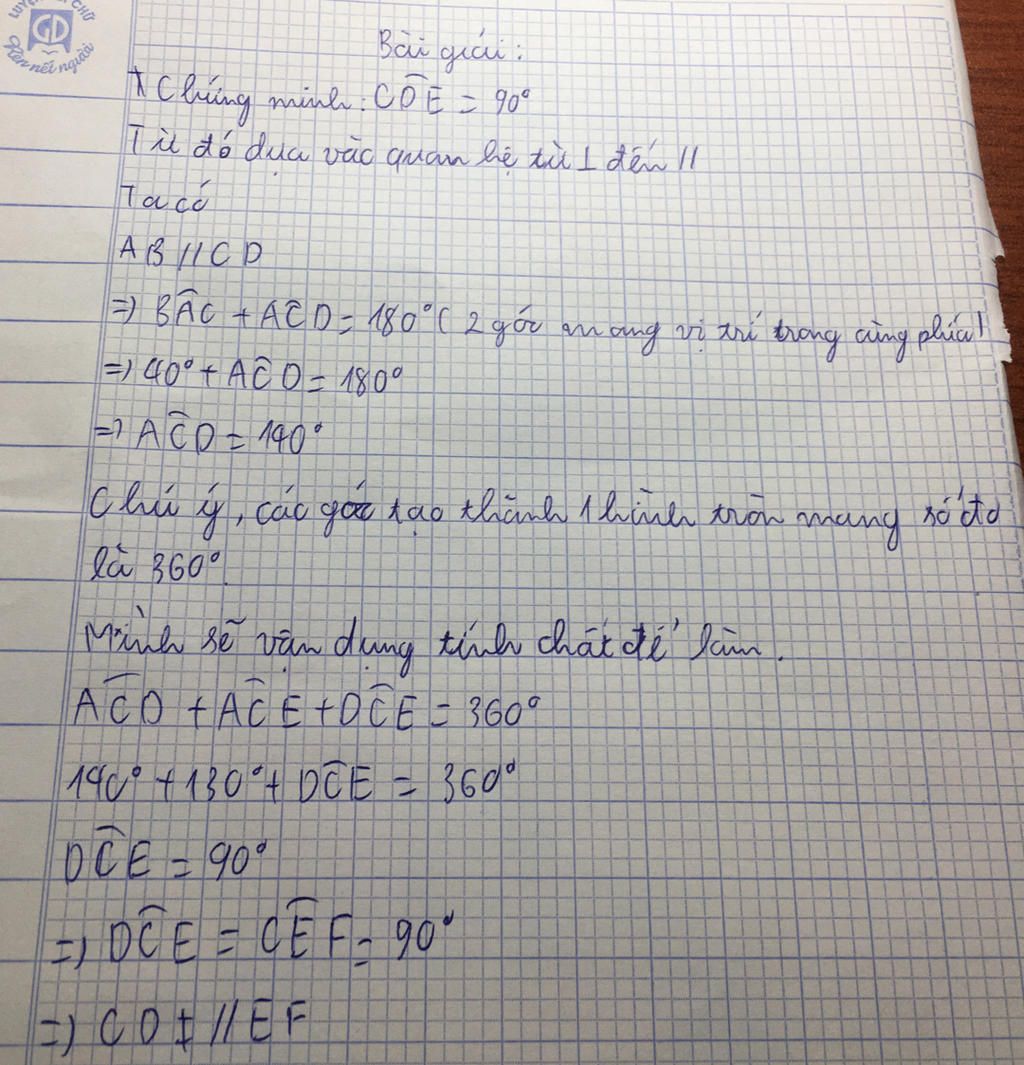 LUYỆN CHỮ
GD
Rèn nết người
Bài giải:
* Chứng minh: CDE = 90°
Từ đó dựa vào quan hệ từ ⊥ đến //
Ta có
AB // CD
=> BAC + ACD = 180° ( 2 góc mang vị trí trong cùng phía)
=> 40° + ACD = 180°
=> ACD = 140°
Chú ý, các góc tạo thành 1 hình tròn mang số đo
là 360°.
Mình sẽ vận dụng tính chất để làm.
ACD + ACE + DCE = 360°
140° + 130° + DCE = 360°
DCE = 90°
=> DCE = CEF = 90°
=> CD // EF